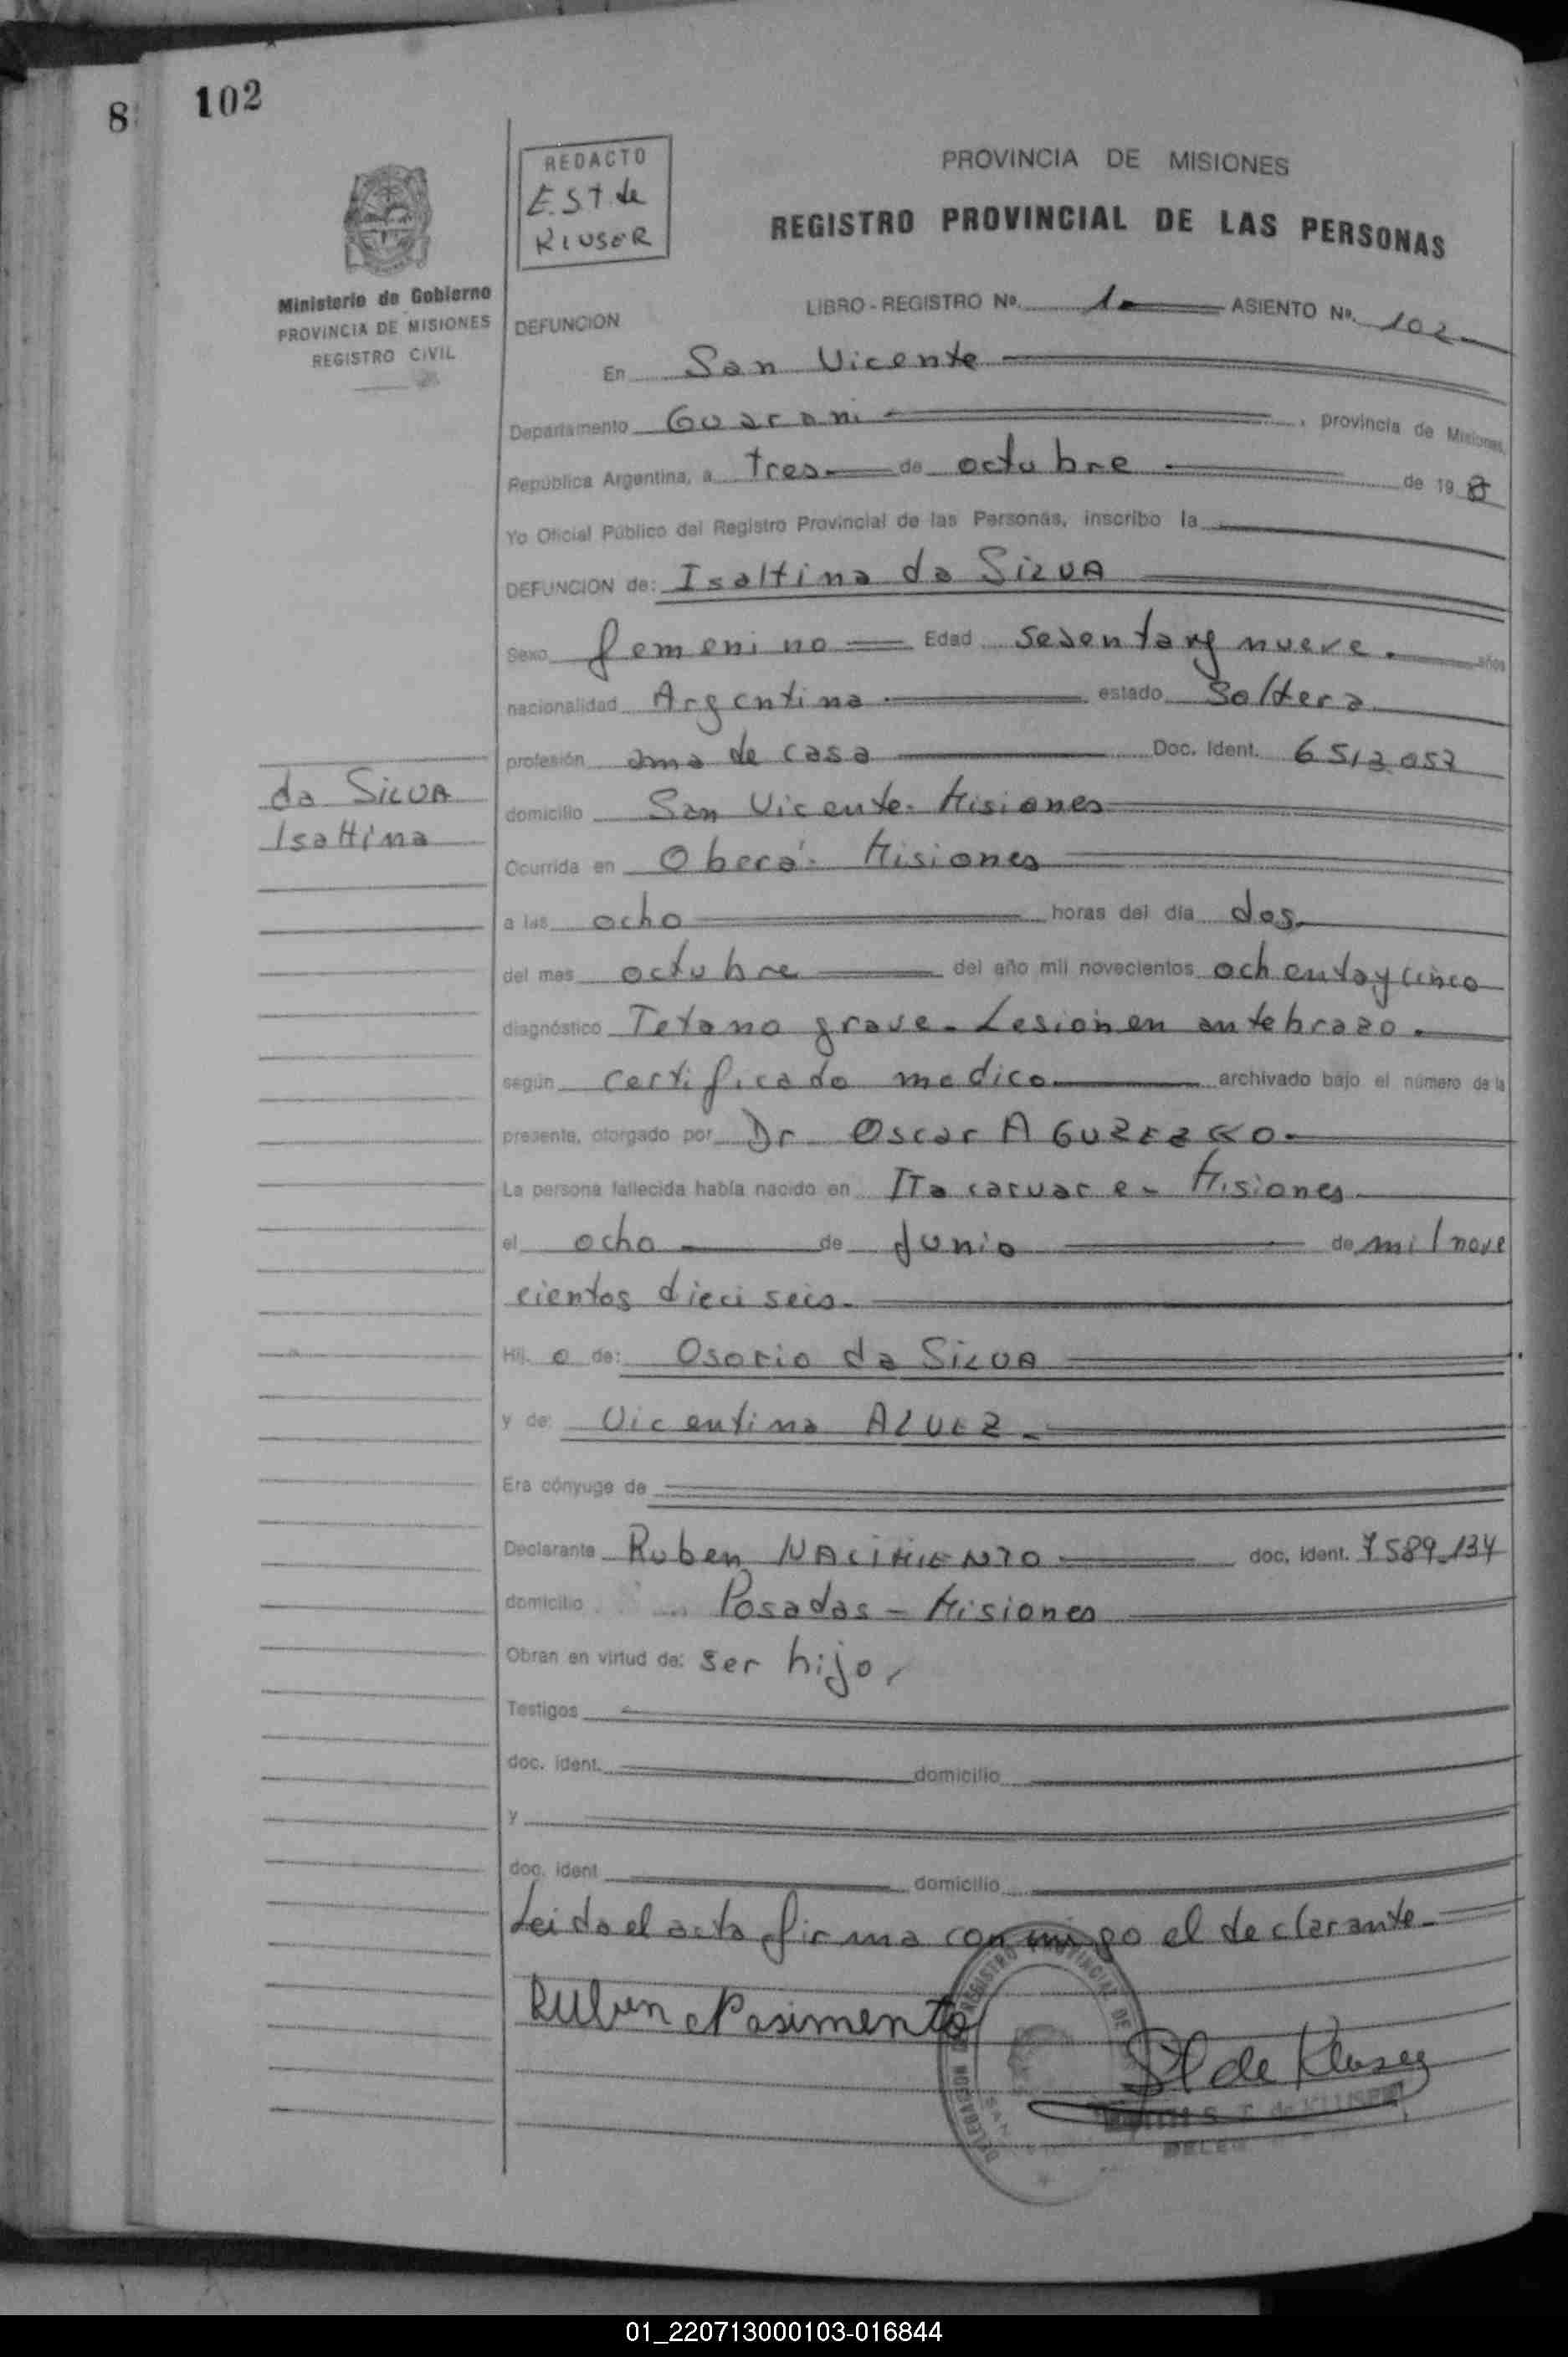 8
102
REDACTO
E.ST. de
KLUSER
PROVINCIA DE MISIONES
REGISTRO PROVINCIAL DE LAS PERSONAS
Ministerio de Gobierno
PROVINCIA DE MISIONES
REGISTRO CIVIL
DEFUNCION
LIBRO - REGISTRO Nº. 1 ASIENTO Nº. 102
En San Vicente
Departamento Guarani, provincia de Misiones,
República Argentina, a tres de octubre de 19 8
Yo Oficial Público del Registro Provincial de las Personas, inscribo la
DEFUNCION de: Isaltina da SILVA
Sexo femenino Edad sesenta y nueve. años
nacionalidad Argentina estado Soltera
profesión ama de casa Doc. Ident.
da SILVA
Isaltina
domicilio San Vicente- Misiones
Ocurrida en Oberá- Misiones
a las ocho horas del día dos
del mes octubre del año mil novecientos ochenta y cinco
diagnóstico Tetano grave- Lesión en antebrazo.
según certificado medico archivado bajo el número de la
presente, otorgado por Dr Oscar
La persona fallecida había nacido en Itacaruare- Misiones
el ocho de junio de mil nove
cientos dieciseis.
Hij. o de: Osorio da SILVA
y de: Vicentina ALVEZ.
Era cónyuge de
Declarante Ruben NACIMIENTO doc. ident. 7589.134
domicilio Posadas - Misiones
Obran en virtud de: ser hijo.
Testigos
doc. ident. domicilio
y
doc. ident domicilio
Leida el acta firma conmigo el declarante-
Ruben Nasimento
St de Kluser
S. T. de KLUSER
01_220713000103-016844